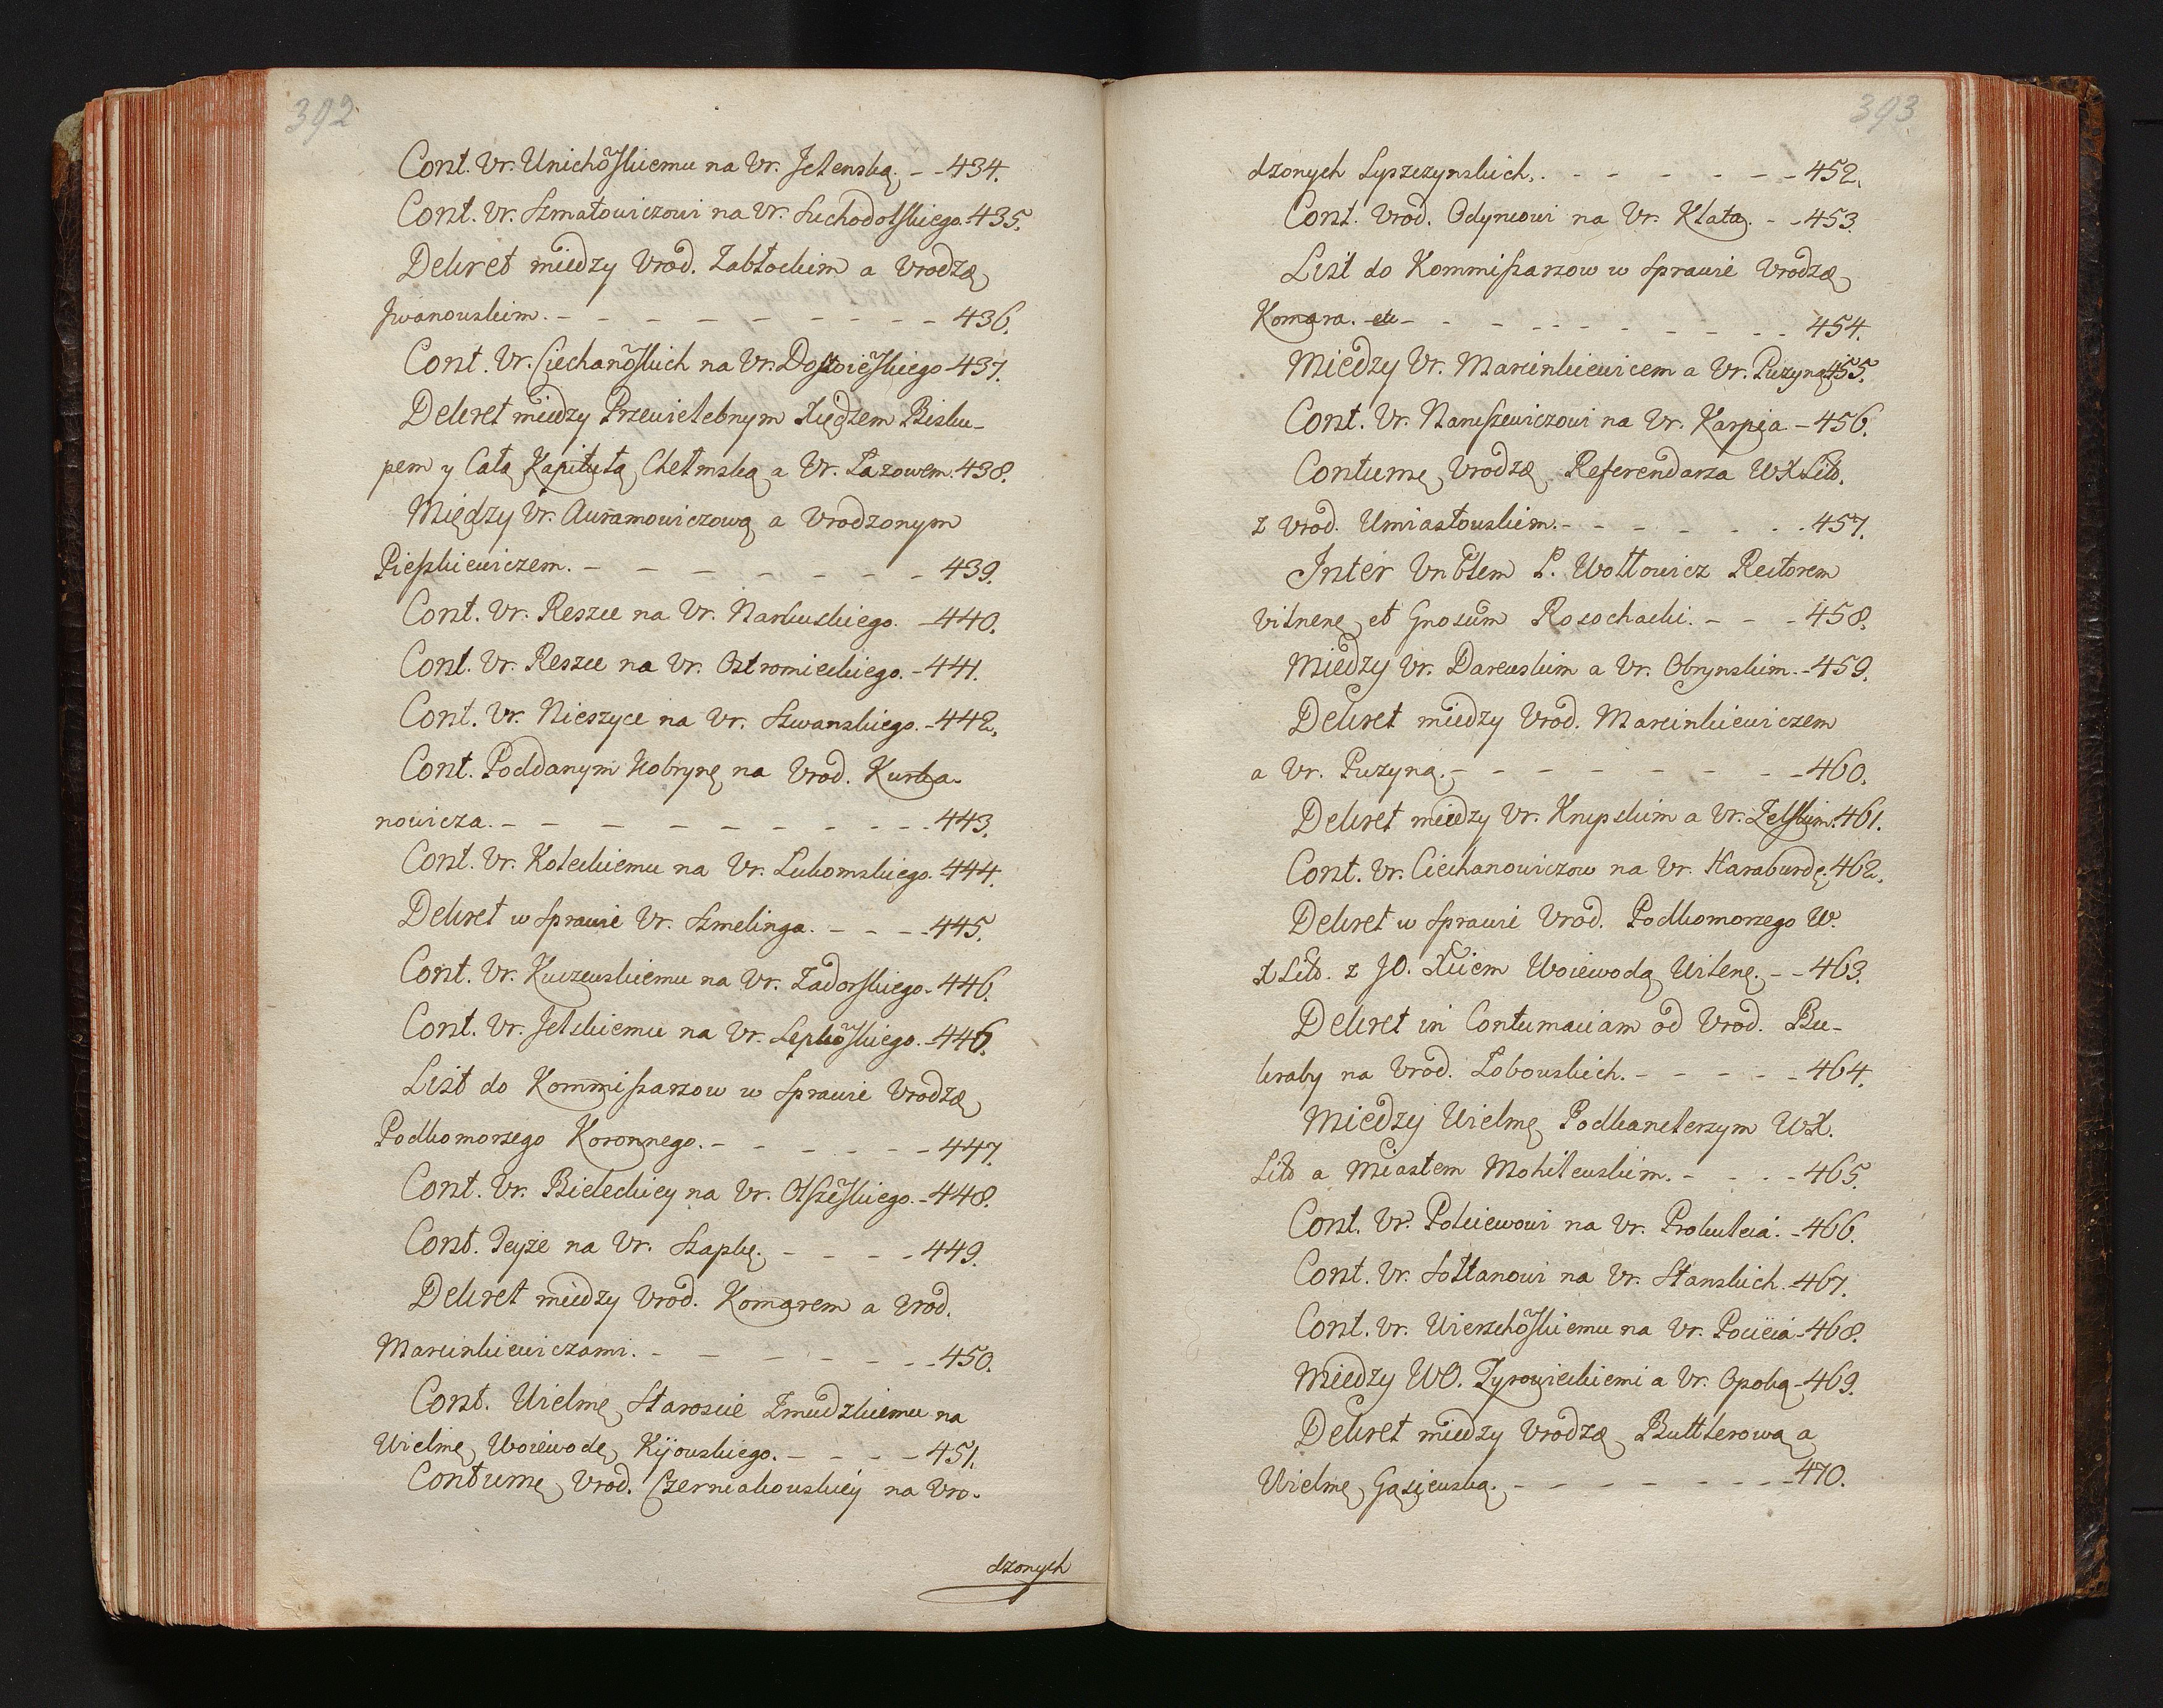 392
Cont. Vr. Unichõskiemu na Vr. Jelenską. - - 434.
Cont. Vr. Szmatowiczowi na Vr. Suchodolskiego. 435.
Dekret miedzy Vrod. Zabłockim a Vrodzę
Jwanouskim. - - - - - - - - - 436.
Cont. Vr. Ciechanõskich na Vr. Dostoiẽskiego 437.
Dekret miedzy Przewielebnym Xiędzem Bisku-
pem y Całą Kapitułą Chełmską a Vr. Łazowem. 438.
Między Vr. Auramowiczową a Vrodzonym
Pieszkiewiczem. - - - - - - - 439.
Cont. Vr. Reszce na Vr. Narkuskiego. - 440.
Cont. Vr. Reszce na Vr. Ostromieckiego. - 441.
Cont. Vr. Nieszyce na Vr. Szwanskiego. - 442.
Cont. Poddanym Kobrynę na Vrod. Kurba-
nowicza. - - - - - - - - - 443.
Cont. Vr. Koleckiemu na Vr. Lukomskiego. 444.
Dekret w Sprawie Vr. Szmelinga. - - - 445.
Cont. Vr. Kuczeuskiemu na Vr. Zadorskiego - 446.
Cont. Vr. Jelskiemu na Vr. Lepkõskiego. - 446.
List do Kommissarzow w Sprawie Vrodzę
Podkomorzego Koronnego. - - - - - 447.
Cont. Vr. Bieleckiey na Vr. Olszẽskiego. - 448.
Cont. Teyze na Vr. Szapkę. - - - - 449.
Dekret miedzy Vrod. Komarem a Vrod.
Marcinkiewiczami. - - - - - - 450.
Cont. Wielmę Staroscie Zmudzkiemu na
Wielmę Woiewodę Kijouskiego. - - - - 451.
Contumę Vrod. Czerniakouskiey na Vro-
dzonych
393
dzonych Łyszczynskich. - - - - - - 452.
Cont. Vrod. Odyncowi na Vr. Klata. - - 453.
List do Kommissarzow w Sprawie Vrodzę
Komara. etc - - - - - - - - 454.
Miedzy Vr. Marcinkiewicem a Vr. Puzyną 455.
Cont. Vr. Naruszewiczowi na Vr. Karpia. - 456.
Contumę Vrodzę Referendarza WXLitt.
z Vrod. Umiastouskim. - - - - - - 457.
Inter Vnblem P. Wołłowicz Rectorem
Vilnenę et Gnosum Rosochacki. - - - 458.
Miedzy Vr. Dareuskim a Vr. Obrynskim. - 459.
Dekret miedzy Vrod. Marcinkiewiczem
a Vr. Puzyną. - - - - - - - - 460.
Dekret miedzy Vr. Krupskim a Vr. Zelskim. 461.
Cont. Vr. Ciechanowiczow na Vr. Haraburdę. 462.
Dekret w Sprawie Vrod. Podkomorzego W.
X Litt. z JO. Xciem Woiewodą Wilenę. - - 463.
Dekret in Contumaciam od Vrod. Bu-
kraby na Vrod. Łobouskich. - - - - - 464.
Miedzy Wielmę Podkanclerzym WX.
Litt a Miastem Mohileuskim. - - - - 465.
Cont. Vr. Polciewowi na Vr. Prokulcia. - 466.
Cont. Vr. Sołtanowi na Vr. Stanskich. - 467.
Cont. Vr. Wierzchõskiemu na Vr. Pociēia - 468.
Miedzy WO. Zyrowieckiemi a Vr. Opoką - 469.
Dekret miedzy Vrodzę Buttlerową a
Wielmę Gąsieuską. - - - - - - - 470.